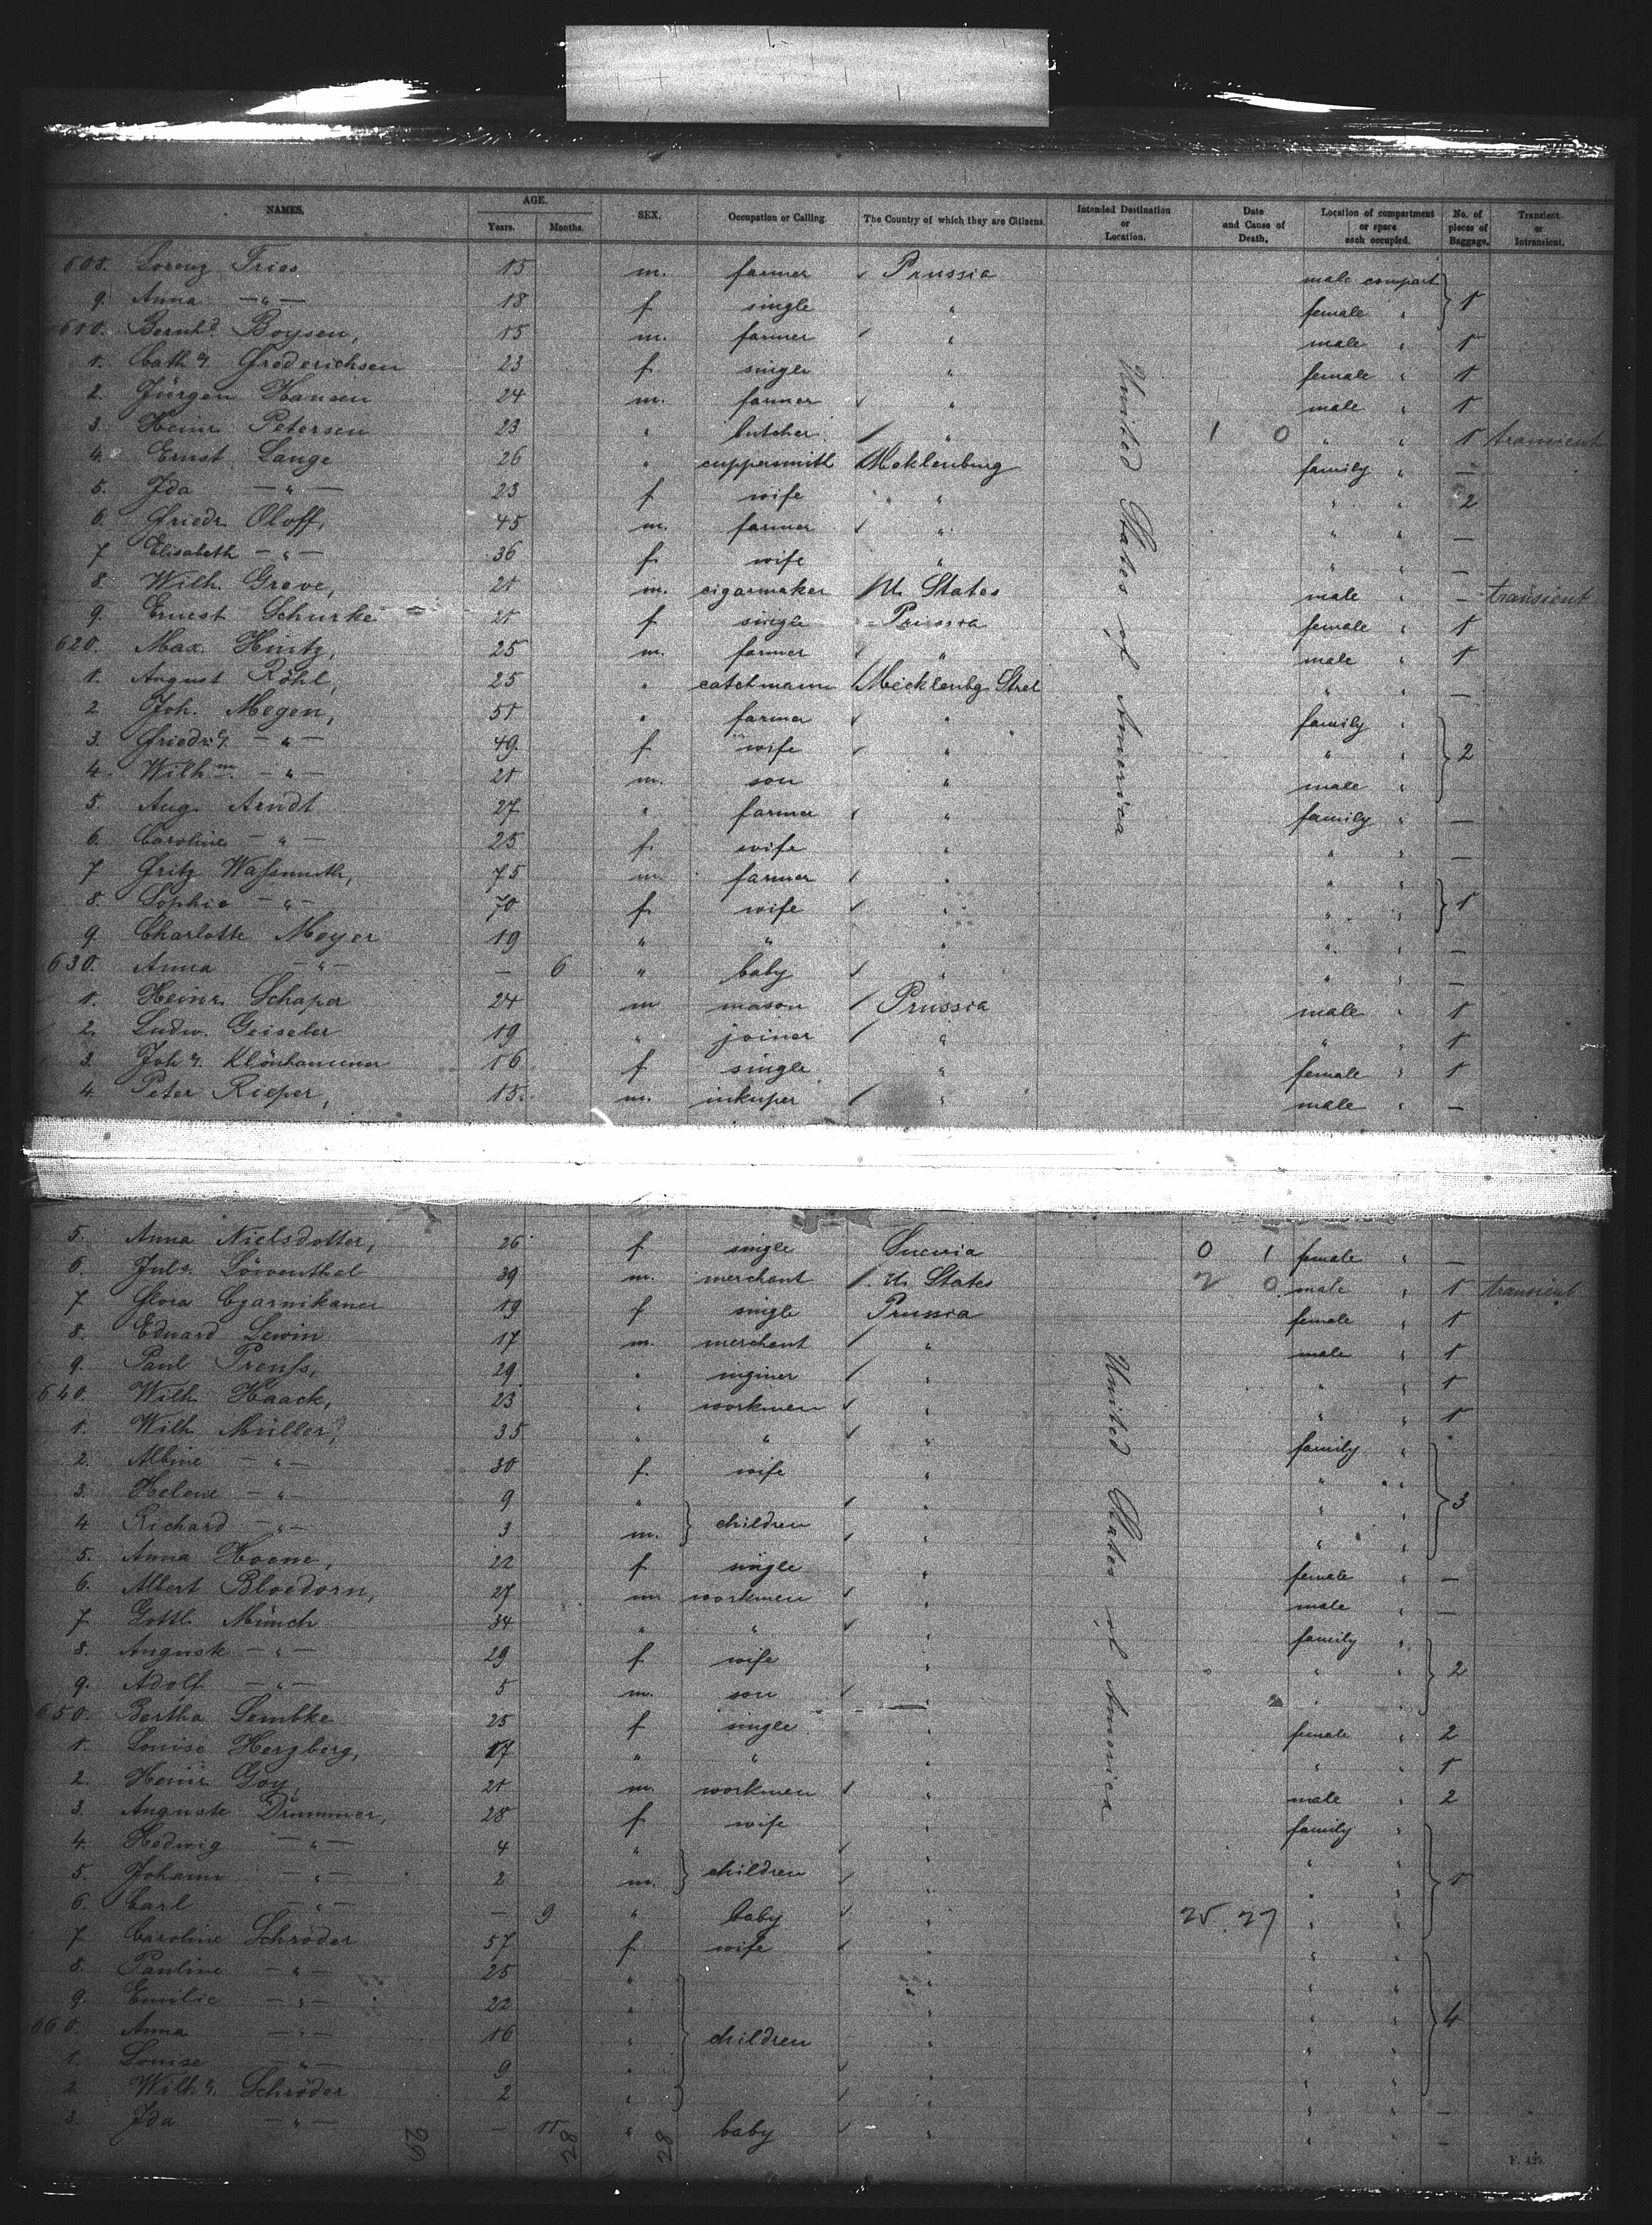 NAMES. AGE. Years. Months. SEX. Occupation or Calling. The Country of which they are Citizens. Intended Destination or Location. Date and Cause of Death. Location of compartment or space each occupied. No. of pieces of Baggage. Transient or Intransient.
608. Lorenz Fries 15 m. farmer Prussia male compart
9. Anna —"— 18 f single " female " } 1
610. Bernhd Boysen, 15 m. farmer " male " 1
1. Cath. Frederichsen 23 f. single " female " 1
2. Jürgen Hansen 24 m. farmer " male " 1
3. Heinr. Petersen 23 " butcher " 1 0 " " 1 transient
4. Ernst Lange 26 " cuppersmith Meklenburg family " —
5. Ida —"— 23 f wife " " " 2
6. Friedr. Oloff, 45 m. farmer " " " —
7 Elisabeth —"— 36 f. wife " " " —
8. Wilh. Greve, 21 m. cigarmaker U. States male " — transient
9. Ernest Schurke 21 f single Prussia female " 1
620. Max. Hintz, 25 m. farmer " male " 1
1. August Röhl, 25 " catchmann Mecklenbg. Strel " " —
2 Joh. Megen, 51 " farmer " family "
3. Friedr. —"— 49. f wife " " " } 2
4. Wilhm. —"— 21 m. son " male "
5. Aug. Arndt 27 " farmer " family " —
6. Caroline —"— 25 f. wife " " " —
7 Fritz Waßmuth, 75 m. farmer " " "
8. Sophie —"— 70 f. wife " " " } 1
9. Charlotte Meyer 19 " " " " " —
630. Anna —"— — 6 " baby " " " —
1. Heinr. Schaper 24 m mason Prussia male " 1
2. Ludw. Geiseler 19 " joiner " " " 1
3. Joh. Klönhammer 16 f single " female " 1
4. Peter Rieper, 15. m. inkuper " male " —
United States of America
5. Anna Nielsdotter, 26 f single Suevia 0 1 female " —
6. Juls. Löwenthal 39 m. merchant U. States 2 0 male " 1 transient
7 Flora Czarnikauer 19 f single Prussia female " 1
8. Eduard Lewin 17 m. merchant " male " 1
9. Paul Preuß, 29 " inginer " " " 1
640. Wilh. Haack, 23 " workmen " " " 1
1. Wilh. Müller, 35 " " " family "
2. Albine —"— 30 f. wife " " "
3. Helene —"— 9 " } children " " " } 3
4 Richard —"— 3 m. " " "
5. Anna Hoene, 22 f single " female " —
6. Albert Bloedorn, 27 m workmen " male " —
7 Gottl. Münch 34 " " " family "
8. August —"— 29 f wife " " " } 2
9. Adolf —"— 5 m. son " " "
650. Bertha Lembke 25 f single " female " 2
1. Louise Herzberg, 17 " " " " " 1
2. Heinr. Goy, 21 m. workmen " male " 2
3. Auguste Drummer, 28 f wife " family "
4. Hedwig —"— 4 " } children " " "
5. Johann —"— 2 m. " " " } 1
6. Carl —"— — 9 " baby " 25. 27 " "
7 Caroline Schröder 57 f wife " " "
8. Pauline —"— 25 " " " "
9. Emilie —"— 22 " " " "
660. Anna —"— 16 " } children " " " } 4
1. Louise —"— 9 " " " "
2. Wilh. Schröder 2 " " " " —
3. Ida —"— — 11 " baby " " " —
United States of America
29 28 28
F. 425.